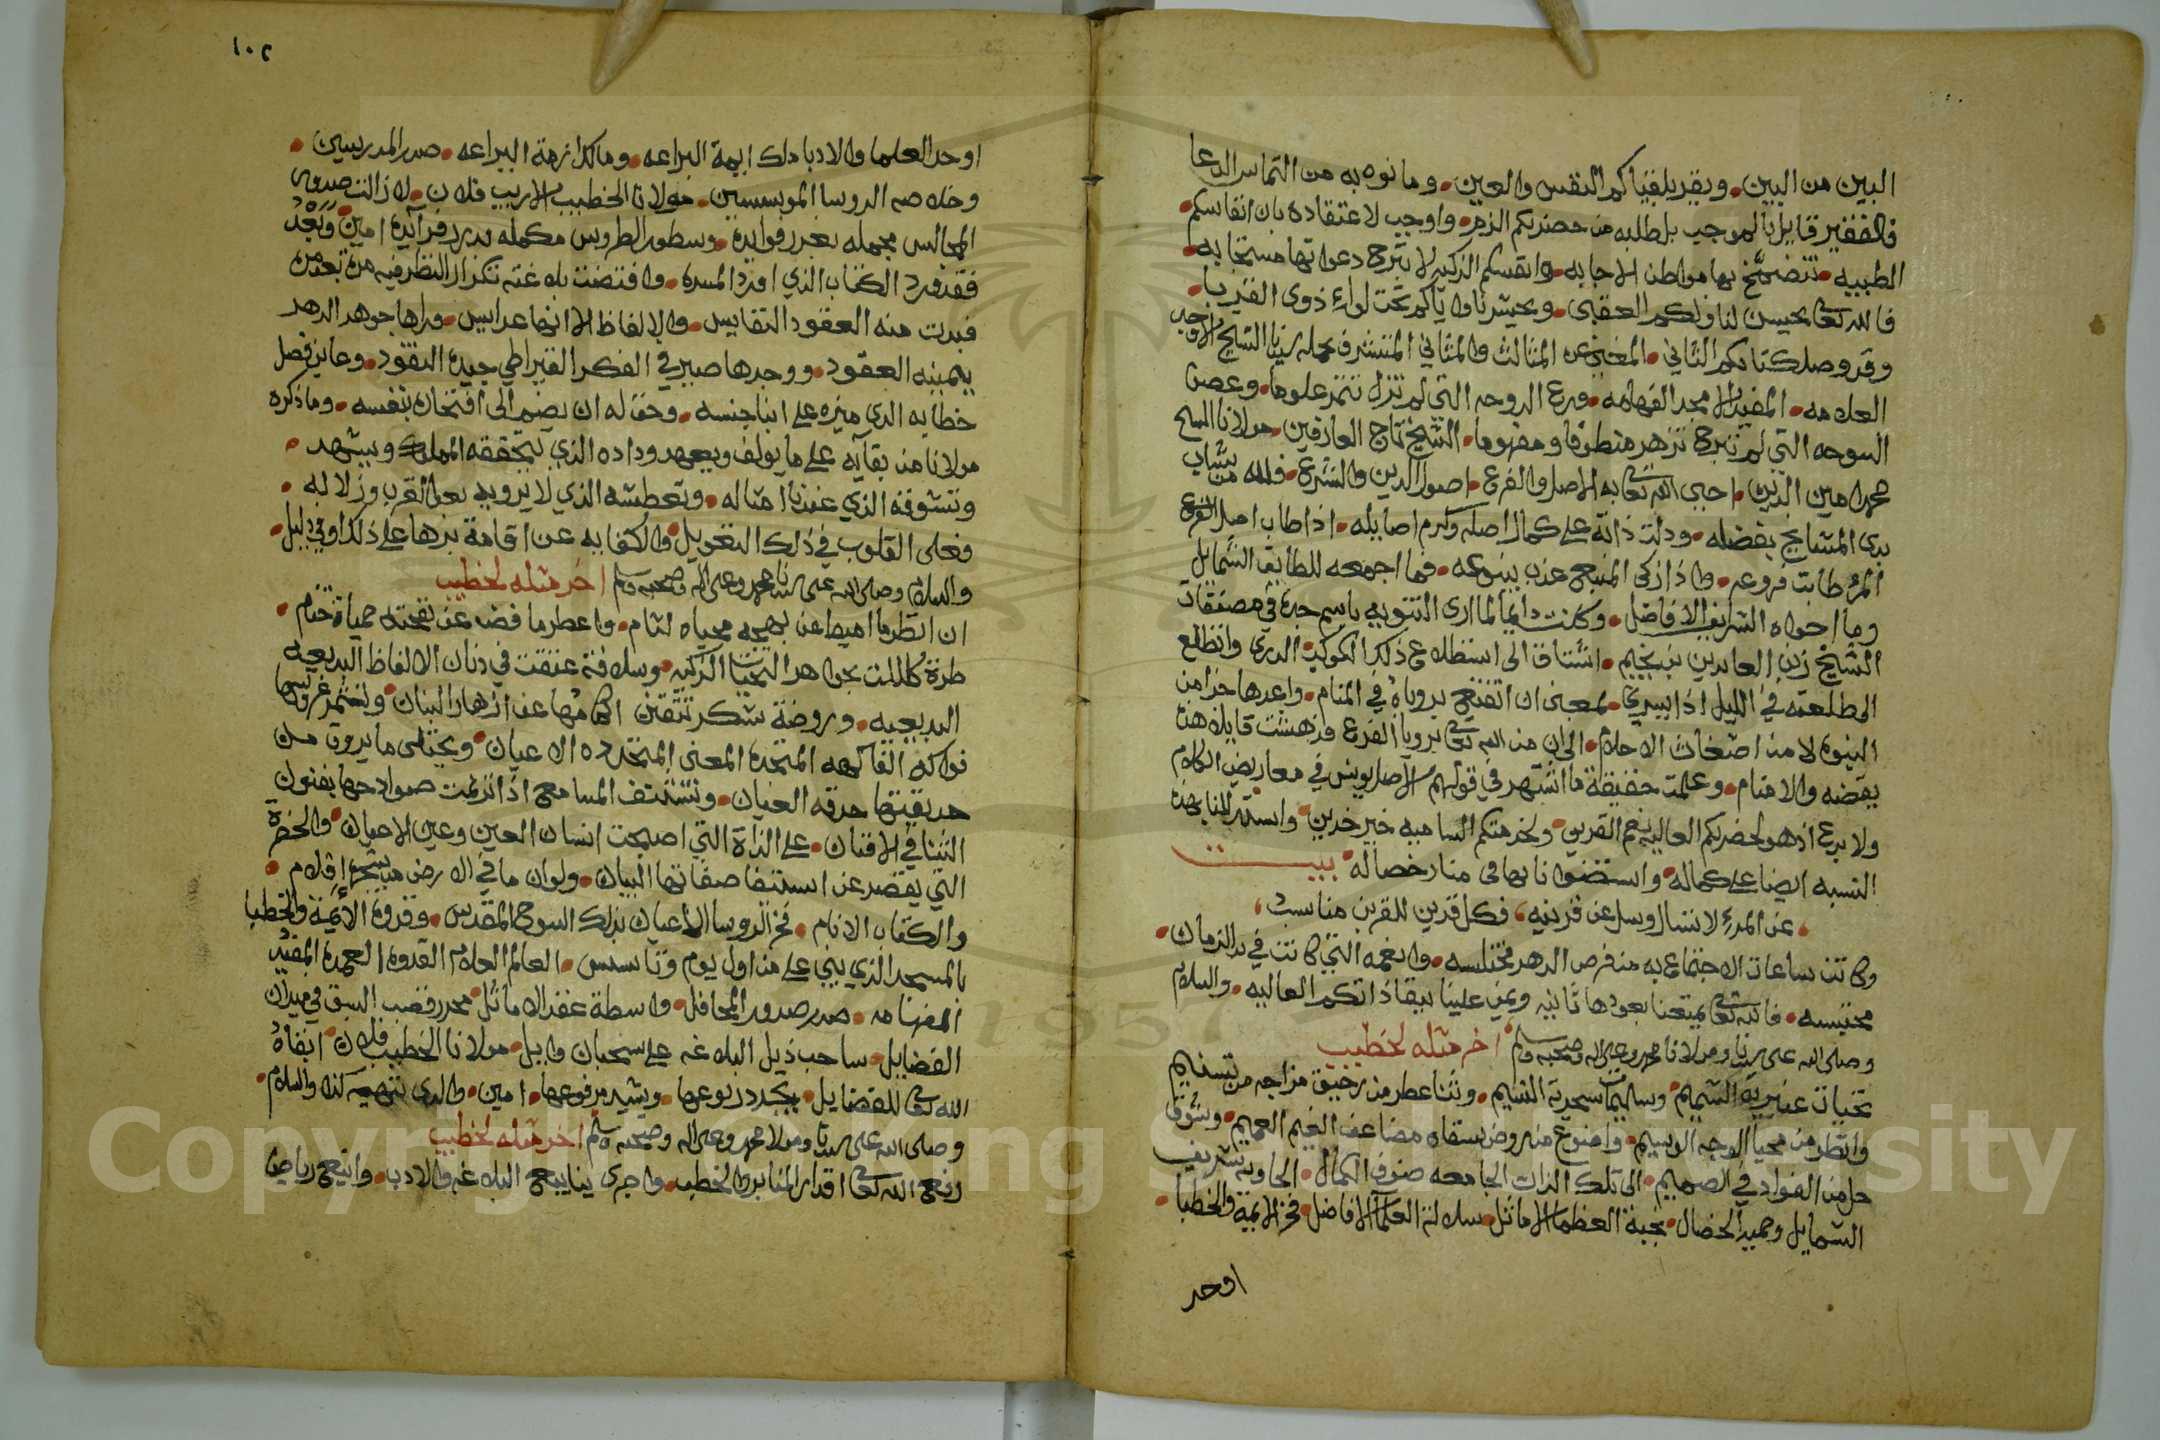 البين من البين • ويقر بلقياكم النفس والعين • وما نوه به من التماس الدعا
فالفقير قايل بالموجب بل طلبه من حضرتكم الزم • واوجب لاعتقاده بان انفاسكم •
الطيبه • تتضمخ بها مواطن الاجابه • وانفسكم الزكيه لا تبرح دعواتها مستجابه •
فالله تعالى يحسن لنا ولكم العقبى • ويحشرنا واياكم تحت لواء ذوى القربا •
وقد وصل كتابكم الثاني • المغني عن المثالث والمثاني المتشرف بحمله سيدنا الشيخ الاوحد
العلامه • المفيد الامجد الفهامه • فرع الدوحه التي لم تزل تثمر علوما • وغصن
السوحه التي لم تبرح تزهر منطوقا ومفهوما • الشيخ تاج العارفين • مولانا الشيخ
محمد امين الدين • احيى الله تعالى به الاصل والفرع • اصول الدين والشرع • فلله من شاب
بدى المشايخ بفضله • ودلت ذاته على كمال اصله وكرم اصايله • اذا طاب اصل الفرع
المرء طابت فروعه • واذا زكى المنبع عذب ينبوعه • فما اجمعه للطايف الشمائل
وما احواه الشرايف الافاضل • وكنت دايما لما ارى التنويه باسم جده في مصنفات
الشيخ زين العابدين بن نجيم • اشتاق الى استطلاع ذلك الكوكب الدري واتطلع
لمطلعته في الليل اذا يسري • بمعنى ان اتفنع بروياه في المنام • واعدها خزا من
النبوه لا من اضغاث الاحلام • الى ان من الله تعالى برويا الفرع فدهشت قايلا هذه
يقضه والا منام • وعلمت حقيقة ما اشتهر في قولهم الاصل يونس في معاريض الكلام
ولا بدع اذ هو لحضرتكم العاليه نعم القرين • ولخدمتكم الساميه خير خدين • واستدللنا بهذه
النسبه ايضا على كماله • واستضوانا بها في منار خصاله • بيت
• عن المرء لا تسال وسل عن قرينه ، فكل قرين للقرين مناسب ،
وكانت ساعات الاجتماع به من فرص الدهر مختلسه • وانعمه التي كانت في يد الزمان •
محتبسه • فالله تعالى يمتعنا بعودها ثانيه ويمن علينا ببقا ذاتكم العاليه • والسلام
وصلى الله على سيدنا ومولانا محمد وعلى اله وصحبه وسلم • اخر مثله لخطيب
تحيات عنبرية الشميم • وتسليمات سحرية النسيم • وثنا عطر من رحيق مزاجه من تسنيم
وانضر من محيا الوجه الوسيم • واضوع من روض سقاه مضاعف الغيم العميم • وشوق
حل من الفواد في الصميم • الى تلك الذات الجامعه صنوف الكمال • الحاويه شريف
الشمايل وحميد الخصال • نخبة العظما الاماثل • سلالة العلما الافاضل • فخر الايمة والخطبا •
اوحد
١٠٢
اوحد العلما والادبا دلك ايمة البراعه • ومالك ازمة اليراعه • صدر المدرسين •
وخلاصه الروسا الموسسين • مولانا الخطيب الاريب فلان • لا زالت صدور
المجالس مجمله بغرر فوايده • وسطور الطروس مكمله بدرر فرآئده امين وبعد
فقد ورد الكتاب الذي اورد المسره • واقتضت بلاغته تكرار النظر فيه مرة بعد مرة
فبدت منه العقود النفايس • والالفاظ الا انها عرايس • وراها جوهر الدهر
يتيمة العقود • ووجدها صيرفي الفكر القيراطي جيدة النقود • وعاين فصل
خطابه الذي ميزه على ابنا جنسه • وحق له ان يضم الى افتخاره بنفسه • وما ذكره
مولانا من بقآيه على ما يولف ويعهد وداده الذي يتحققه المملوك ويشهد •
وتشوقه الذي عندنا امثاله • وتعطشه الذي لا يرويه بعد القرب وزلاله •
فعلى القلوب في ذلك التعويل • والكفايه عن اقامة برها على ذلك اوفى دليل •
والسلام وصلى الله على سيدنا محمد وعلى اله وصحبه وسلم اخر مثله لخطيب
ان انضر ما اميط عن بهجه محياه لثام • واعطر ما فض عن نفحته حمياة ختام •
طرة كللت بجواهر التحيات الزكيه • وسلافة عتقت في دنان الالفاظ البديعيه
البديعيه • وروضة شكر تتفتق اكمامها عن ازهار البنان • وتثمر غروسها
فواكه الفاكهه المتحدة المعنى المتعدده الاعيان • ويجتلى ما يروق من
حديقتها حدقه العيان • وتتشنف المسامع اذا ترنمت صوادحها بفنون
الثنا في الافنان • على الذاة التي اصبحت انسان العين وعين الاعيان • والحضرة
التي يقصر عن استيفا صفاتها البيان • ولو ان ما في الارض من شجرة اقلام •
والكتاب الانام • فخر الروسا الاعيان بذلك السوح المقدس • وقدوة الايمة والخطبا
بالمسجد الذي بني على من اول يوم وتاسس • العالم العلام القدوة العمدة المفيد
الفهامه • صدر صدور المحافل • واسطة عقد الاماثل • محرز قصب السبق في ميدان
الفضايل • ساحب ذيل البلاغه على سحبان وايل • مولانا الخطيب فلان • ابقاه
الله تعالى للفضايل • يجدد ربوعها • ويشيد مرفوعها • امين • والذي ننهيه كذا والسلام •
وصلى الله على سيدنا ومولانا محمد وعلى اله وصحبه وسلم اخر مثله لخطيب
رفع الله تعالى اقدار المنابر والخطب • واجرى ينابيع البلاغه والادب • واينع رياض
Copyright © King Saud University
1957